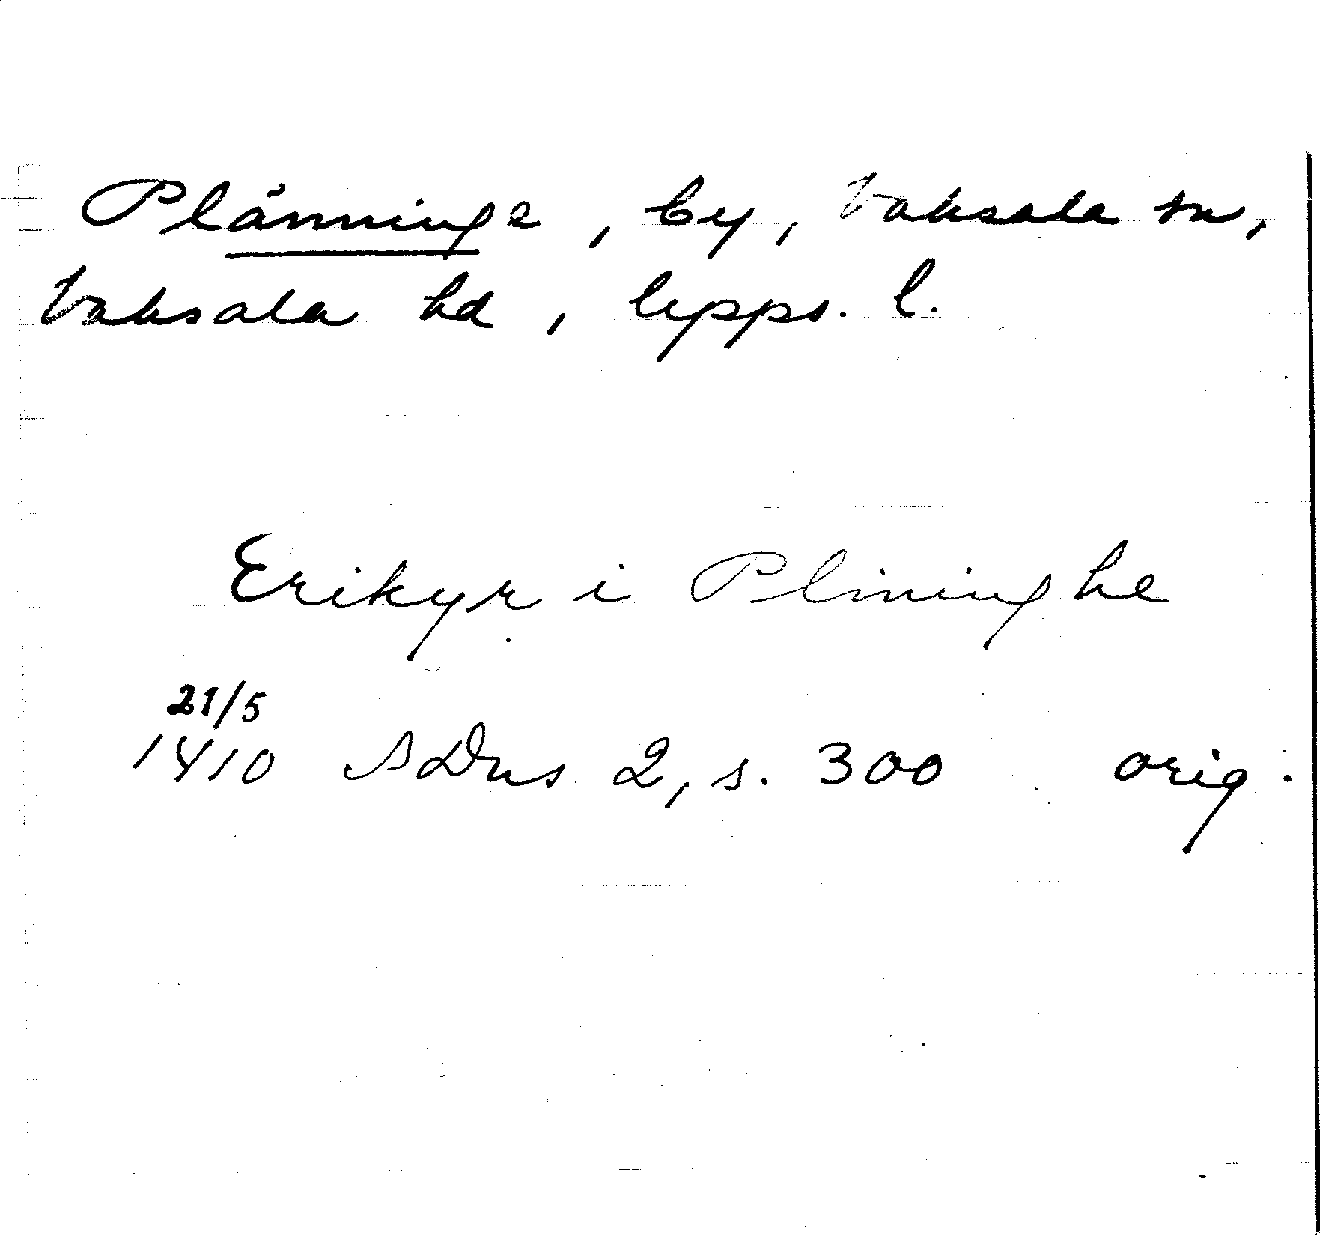 Plånninge, by, Vaksala sn,
Vaksala hd, Upps. l.
Erikyr i Plininghe
21/5
1410 SDns 2, s. 300 orig.